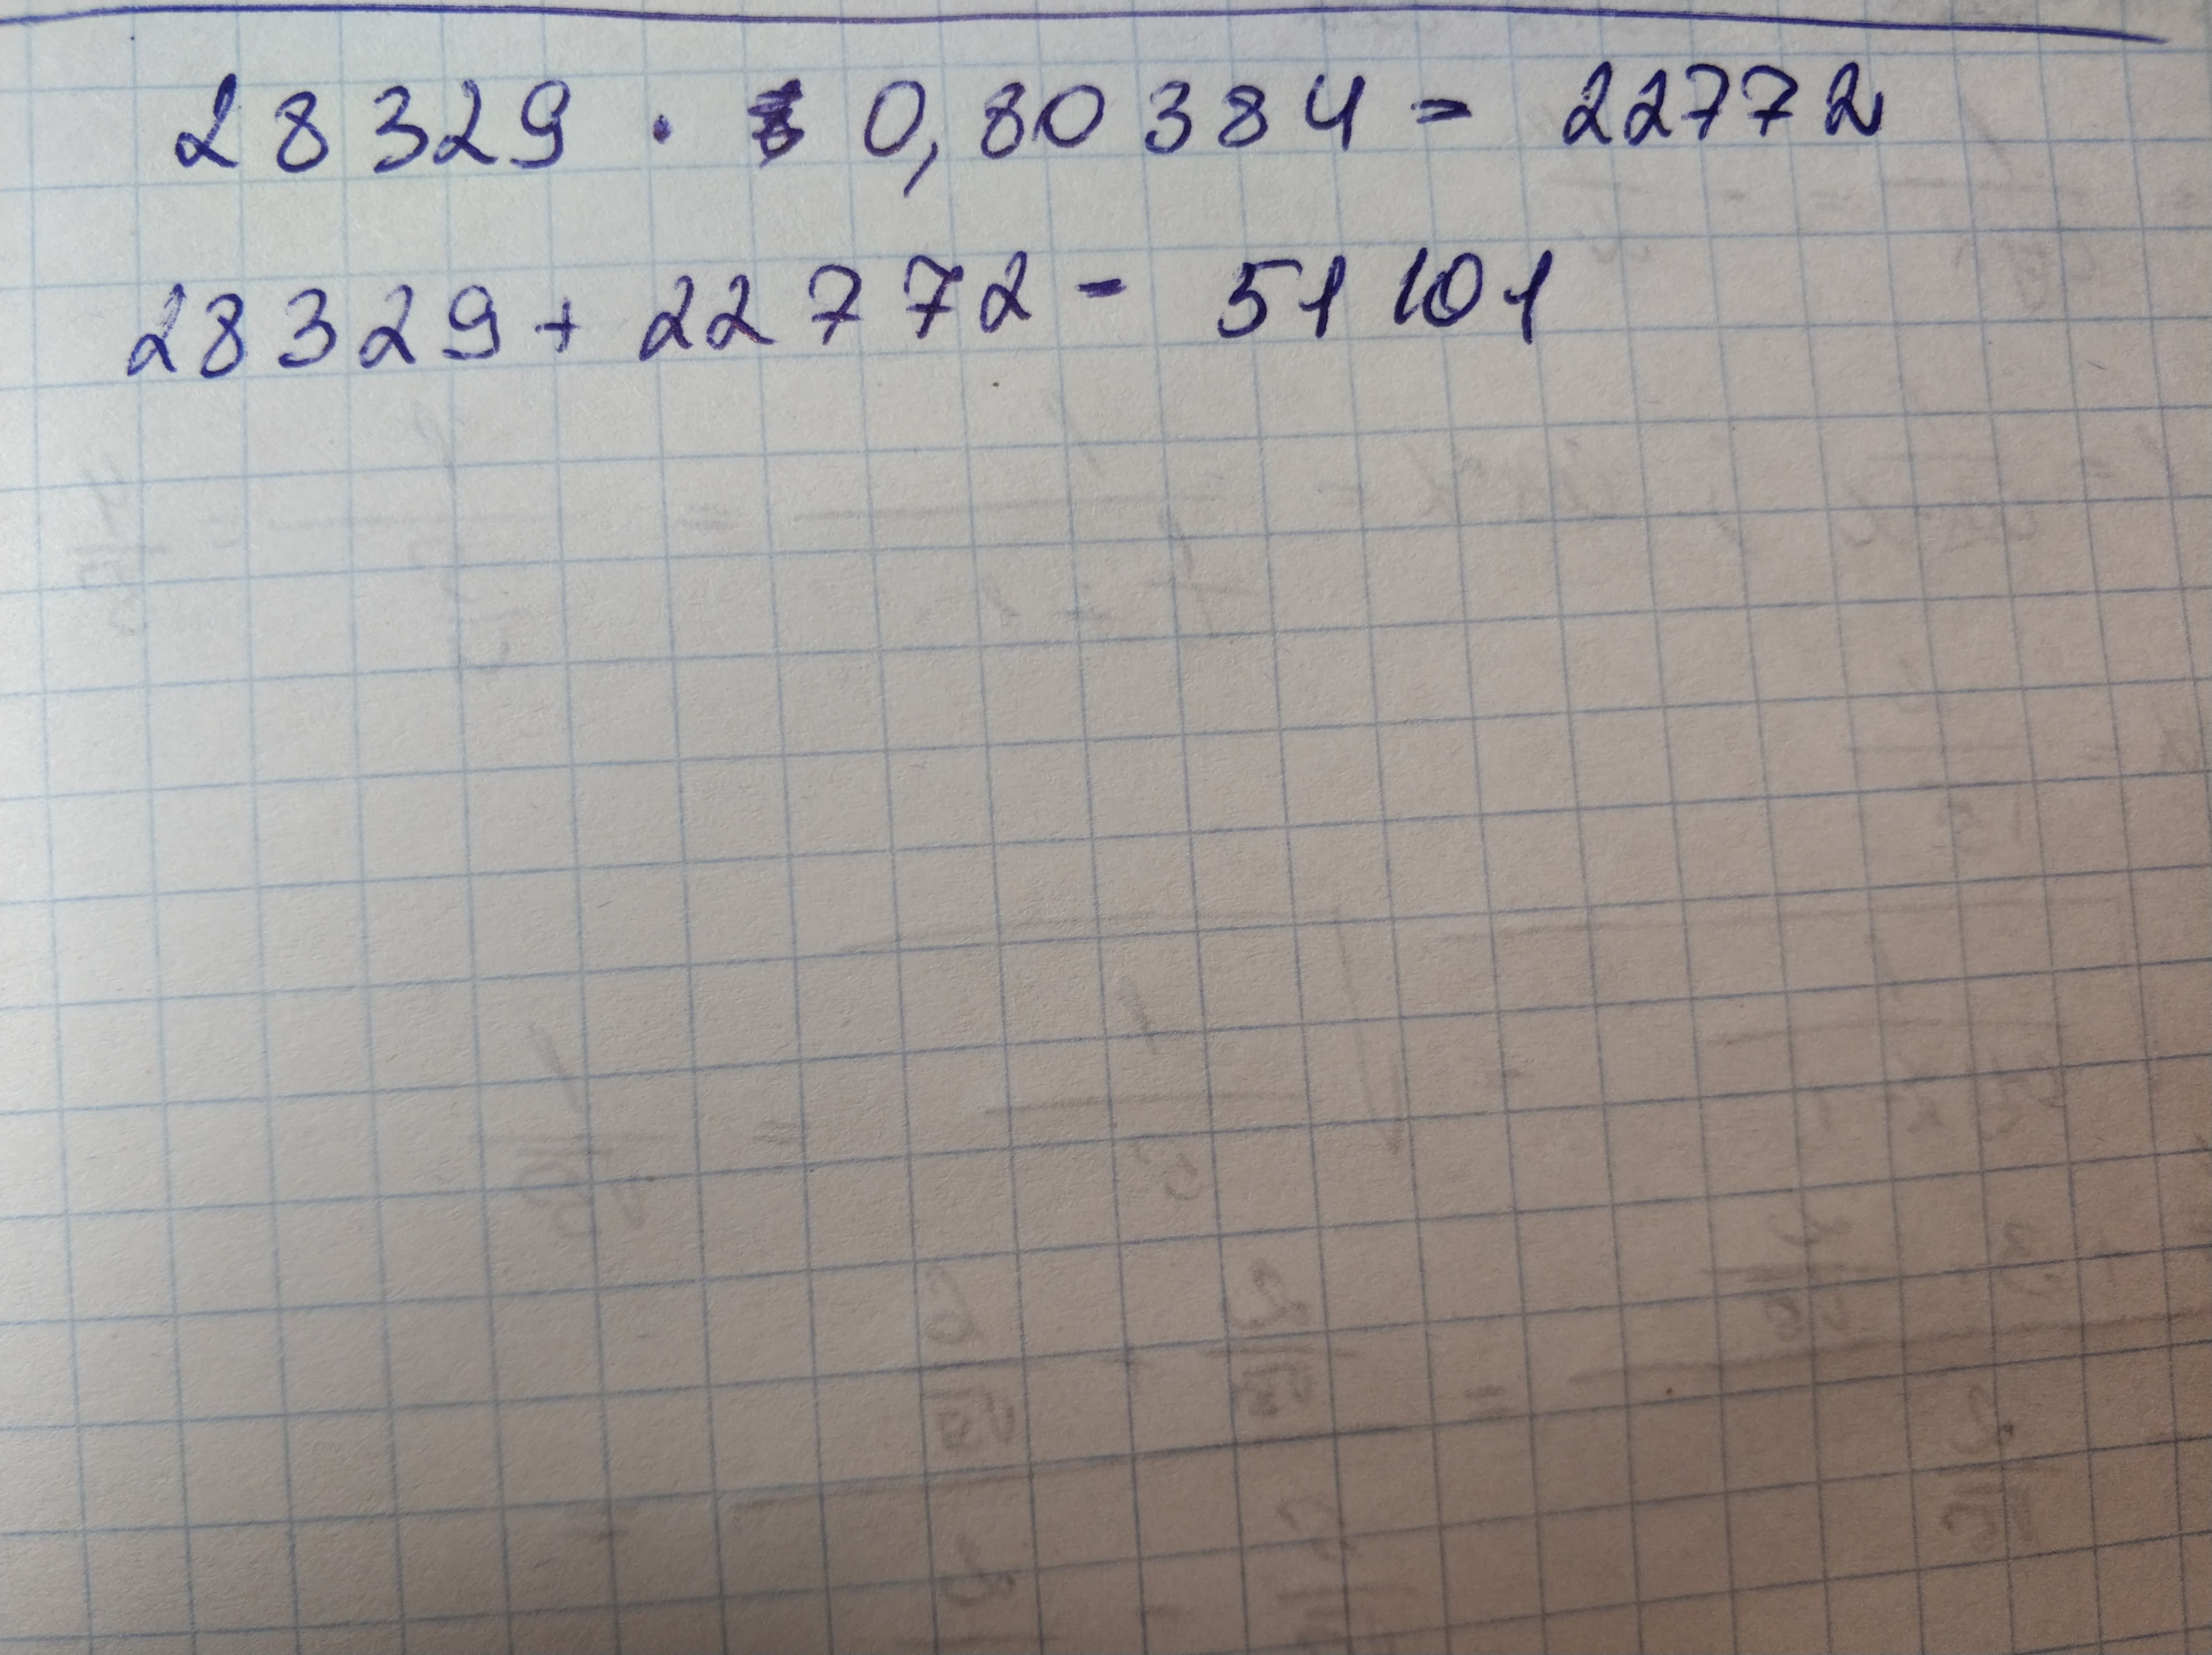 28329 · 0,80384 = 22772
28329 + 22772 = 51101